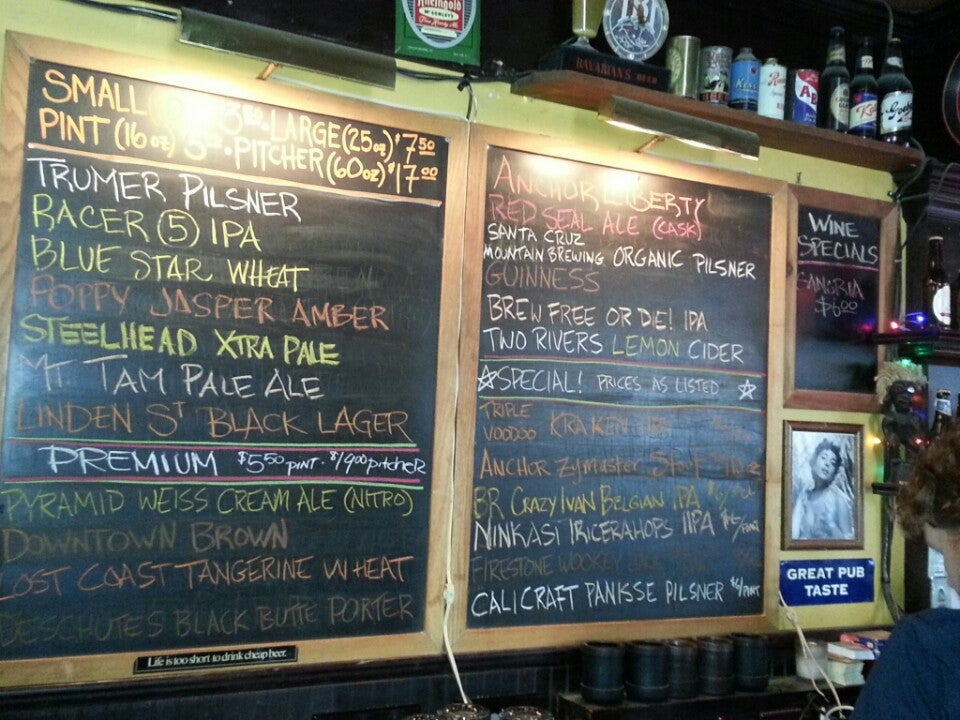 SMALL LARGE (25oz) $7.50
PINT (16oz) PITCHER (60oz) $17.00
TRUMER PILSNER
RACER 5 IPA
BLUE STAR WHEAT
POPPY JASPER AMBER
STEELHEAD XTRA PALE
MT TAM PALE ALE
LINDEN ST BLACK LAGER
PREMIUM $5.50 PINT · $19.00 pitcher
PYRAMID WEISS CREAM ALE (NITRO)
DOWNTOWN BROWN
LOST COAST TANGERINE WHEAT
DESCHUTES BLACK BUTTE PORTER
Life is too short to drink cheap beer.
ANCHOR LIBERTY
RED SEAL ALE (CASK)
SANTA CRUZ
MOUNTAIN BREWING ORGANIC PILSNER
GUINNESS
BREW FREE OR DIE! IPA
TWO RIVERS LEMON CIDER
SPECIAL! PRICES AS LISTED
TRIPLE
VOODOO KRAKEN
ANCHOR ZYMASTER
BR CRAZY IVAN BELGIAN IPA
NINKASI TRICERAHOPS IIPA
FIRESTONE WOOKEY
CALICRAFT PANISSE PILSNER $6/PINT
WINE
SPECIALS
SANGRIA
$6.00
GREAT PUB
TASTE
Rheingold
BAVARIAN'S